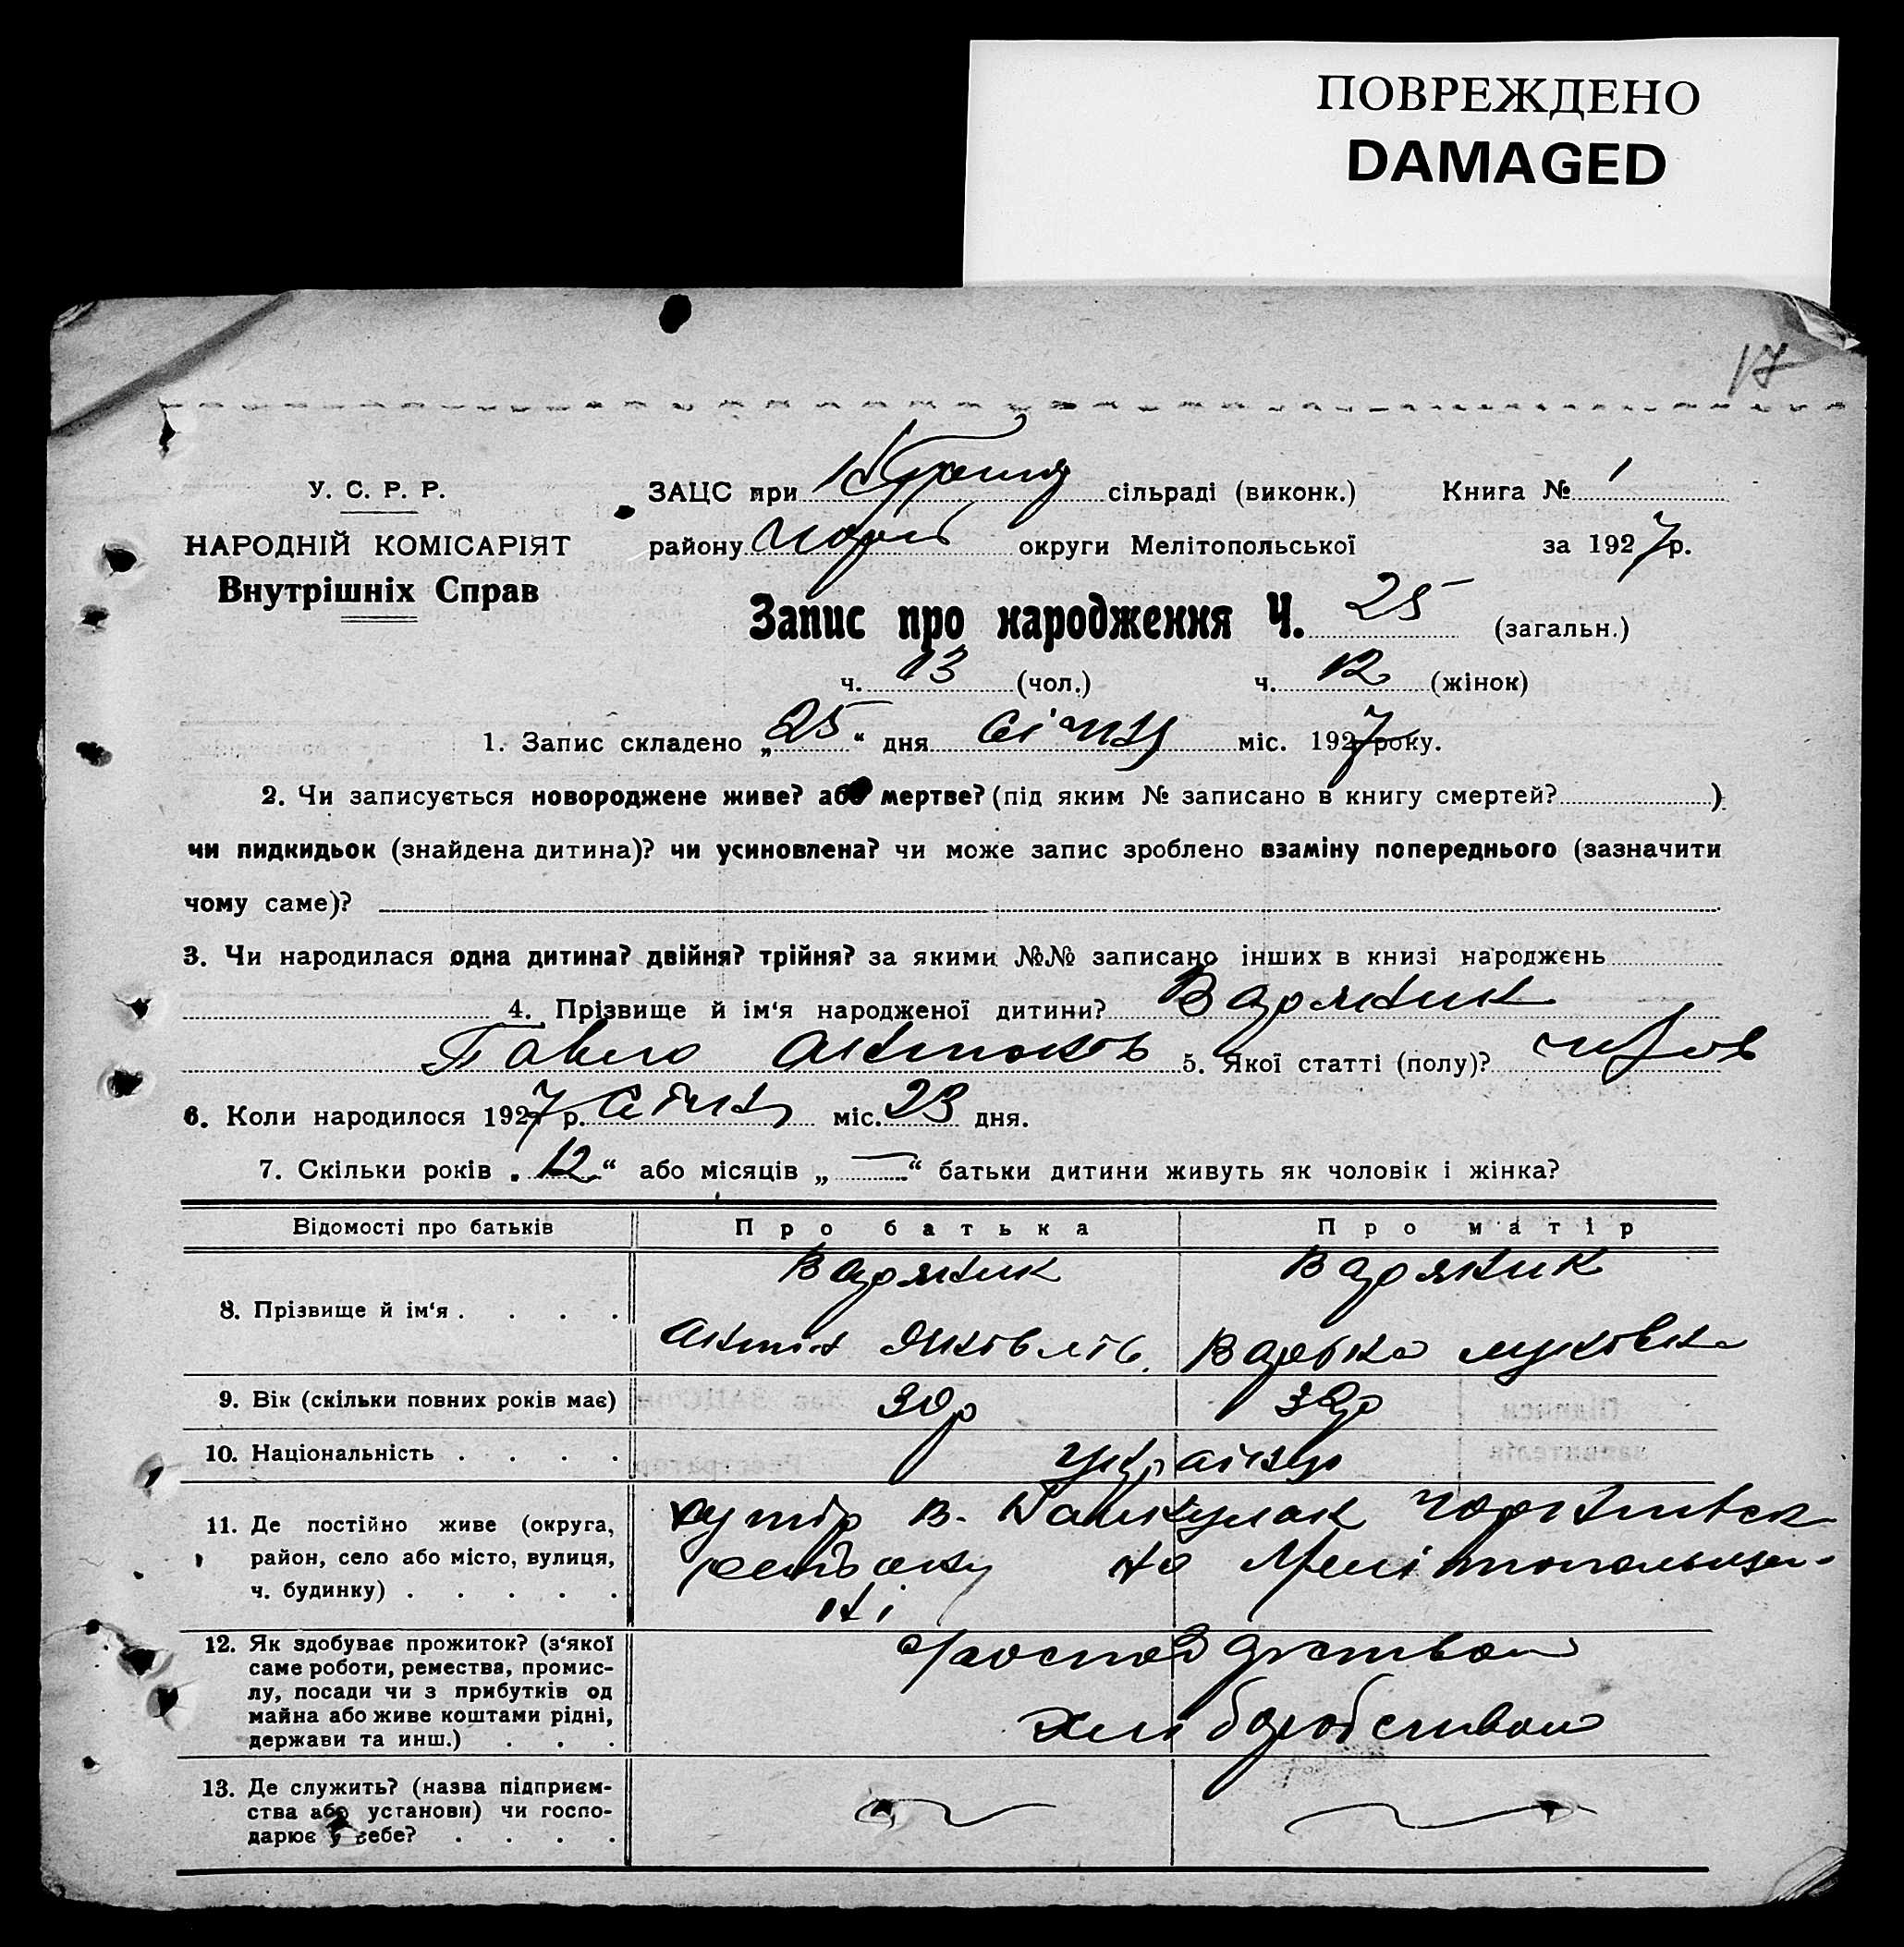 ПОВРЕЖДЕНО
DAMAGED
17
У. С. Р. Р.
НАРОДНІЙ КОМІСАРІЯТ
Внутрішніх Справ
ЗАЦС при сільраді (виконк.) Книга № 1
району Чорн округи Мелітопольської за 1927 р.
Запис про народження Ч. 25 (загальн.)
ч. 13 (чол.) ч. 12 (жінок)
1. Запис складено „25“ дня січня міс. 1927 року.
2. Чи записується новороджене живе? або мертве? (під яким № записано в книгу смертей? )
чи пидкидьок (знайдена дитина)? чи усиновлена? чи може запис зроблено взаміну попереднього (зазначити
чому саме)?
3. Чи народилася одна дитина? двійня? трійня? за якими №№ записано інших в книзі народжень
4. Прізвище й ім‘я народженої дитини? Варяник
Павло Антонов 5. Якої статті (полу)? чолов
6. Коли народилося 1927 р. січня міс. 23 дня.
7. Скільки років „12“ або місяців „—“ батьки дитини живуть як чоловік і жінка?
Відомості про батьків Про батька Про матір
8. Прізвище й ім‘я . . . . Варяник Варяник
Антін Яковлів. Варька
9. Вік (скільки повних років має) 30 р 32 р
10. Національність . . . . українці
11. Де постійно живе (округа, хутір В.
район, село або місто, вулиця, району на Мелітопольщи-
ч. будинку) . . . . . ні
12. Як здобуває прожиток? (з‘якої
саме роботи, ремества, промис-
лу, посади чи з прибутків од
майна або живе коштами рідні,
держави та инш.) . . .
господарством
хліборобством
13. Де служить? (назва підприєм-
ства або установи) чи госпо-
дарює у себе? . . . .